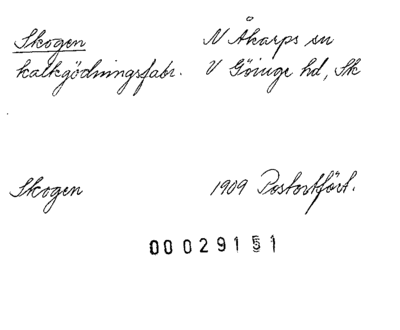 Skogen N Åkarps sn
kalkgödningsfabr. V Göinge hd, Sk
Skogen 1909 Postortfört.
00029151